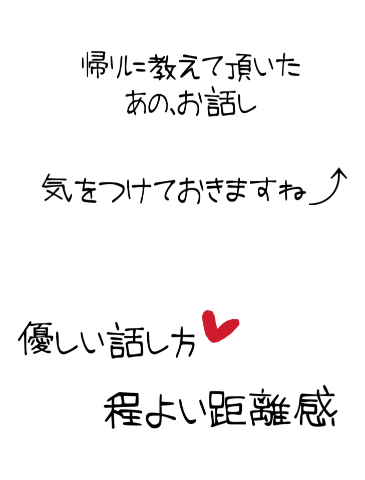 帰りに教えて頂いた
あの、お話し
気をつけておきますね
優しい話し方
程よい距離感